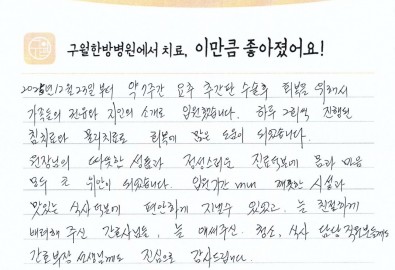 구월한방병원에서 치료, 이만큼 좋아졌어요!
2025년 12월 23일부터 약 7주간 요추 추간판 수술후 회복을 위해서
가족들의 권유와 지인의 소개로 입원했습니다. 하루 2회씩 진행된
침치료와 물리치료로 회복에 많은 도움이 되었습니다.
원장님의 따뜻한 설명과 정성스러운 진료덕분에 몸과 마음
모두 큰 위안이 되었습니다. 입원기간 깨끗한 시설과
맛있는 식사덕분에 편안하게 지낼수 있었고, 늘 친절하게
배려해 주신 간호사님들, 늘 애써주신 청소, 식사 담당 직원분들께도
간호부장 선생님께도 진심으로 감사드립니다.